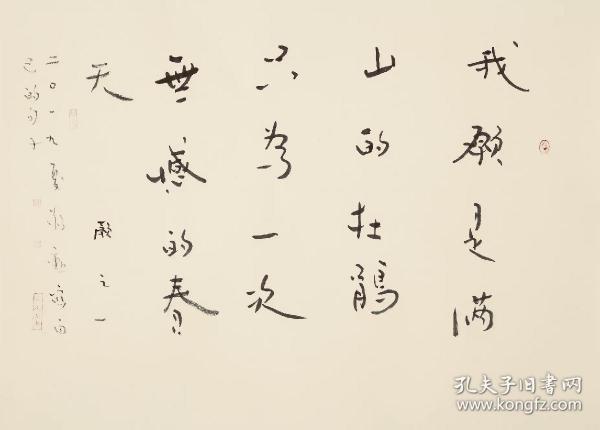 我願是满
山的杜鵑
只為一次
無憾的春
天
願之一
二〇一九夏蒋勳寫自
己的句子
孔夫子旧书网
www.kongfz.com